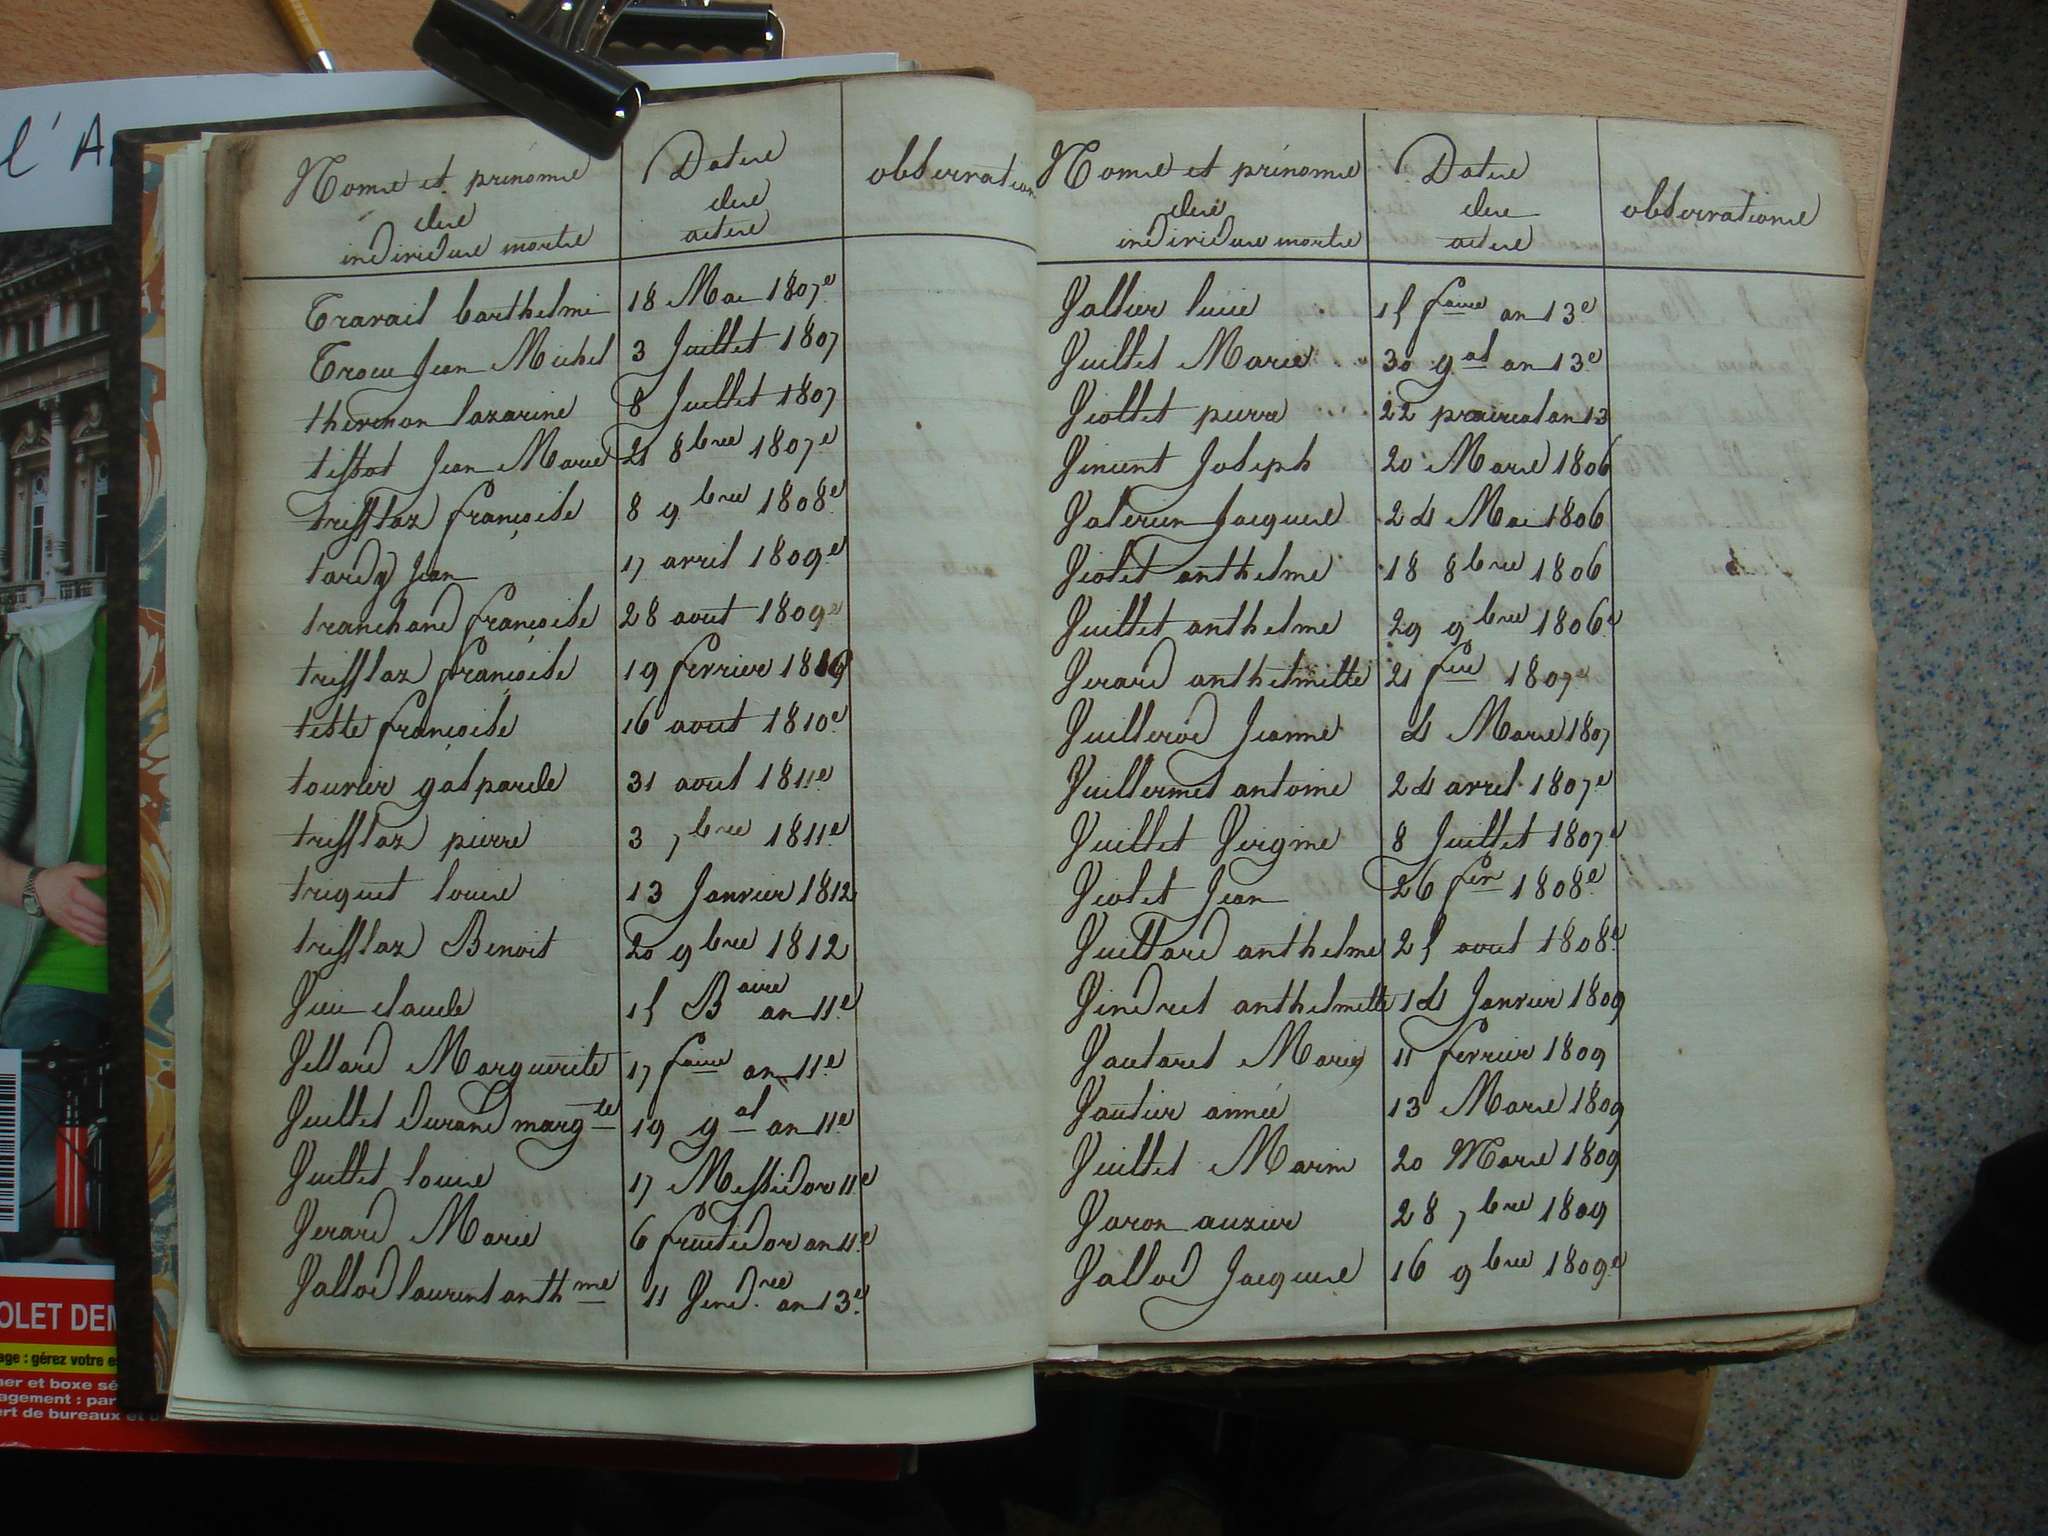 l'A
Noms et prénoms
des
individus morts
Dates
des
actes
observation
Travail barthelmi 18 Mai 1807e
Trocu Jean Michel 3 Juillet 1807
thévenon lazarine 8 Juillet 1807
tissot Jean Marie 21 8bre 1807e
trifflaz françoise 8 9bre 1808e
tardy Jean 17 avril 1809e
tranchand françoise 28 aout 1809e
trifflaz françoise 19 fevrier 1810
teste françoise 16 aout 1810e
tournier gasparde 31 aout 1811e
trifflaz pierre 3 7bre 1811e
triquet louise 13 Janvier 1812
trifflaz Benoit 20 9bre 1812
Vuie claude 15 Baire an 11e
Vellard Marguerite 17 faire an 11e
Vuillet Durand margte 19 gal an 11e
Vuillet louise 17 Messidor 11e
Verard Marie 6 fructidor an 11e
Vallod laurent anthme 11 Vend.re an 13e
Noms et prénoms
des
individus morts
Dates
des
actes
observations
Vallier lucie 15 faire an 13e
Vuillet Marie 30 gal an 13e
Viollet pierre 22 prairial an 13
Vincent Joseph 20 Mars 1806
Valerien Jacques 24 Mai 1806
Violet anthelme 18 8bre 1806
Vuillet anthelme 29 9bre 1806e
Verard anthelmette 21 fer 1807e
Vuillerod Jeanne 4 Mars 1807
Vuillermet antoine 24 avril 1807e
Vuillet Virginie 8 Juillet 1807e
Violet Jean 26 fer 1808e
Vuillard anthelme 25 aout 1808e
Vindret anthelmette 14 Janvier 1809
Vautaret Marie 11 fevrier 1809
Vautier aimée 13 Mars 1809
Vuillet Marin 20 Mars 1809
Varon auzier 28 7bre 1809
Vallod Jacques 16 9bre 1809e
OLET DEM
age : gérez votre es
her et boxe sé
agement : par
ert de bureaux et d